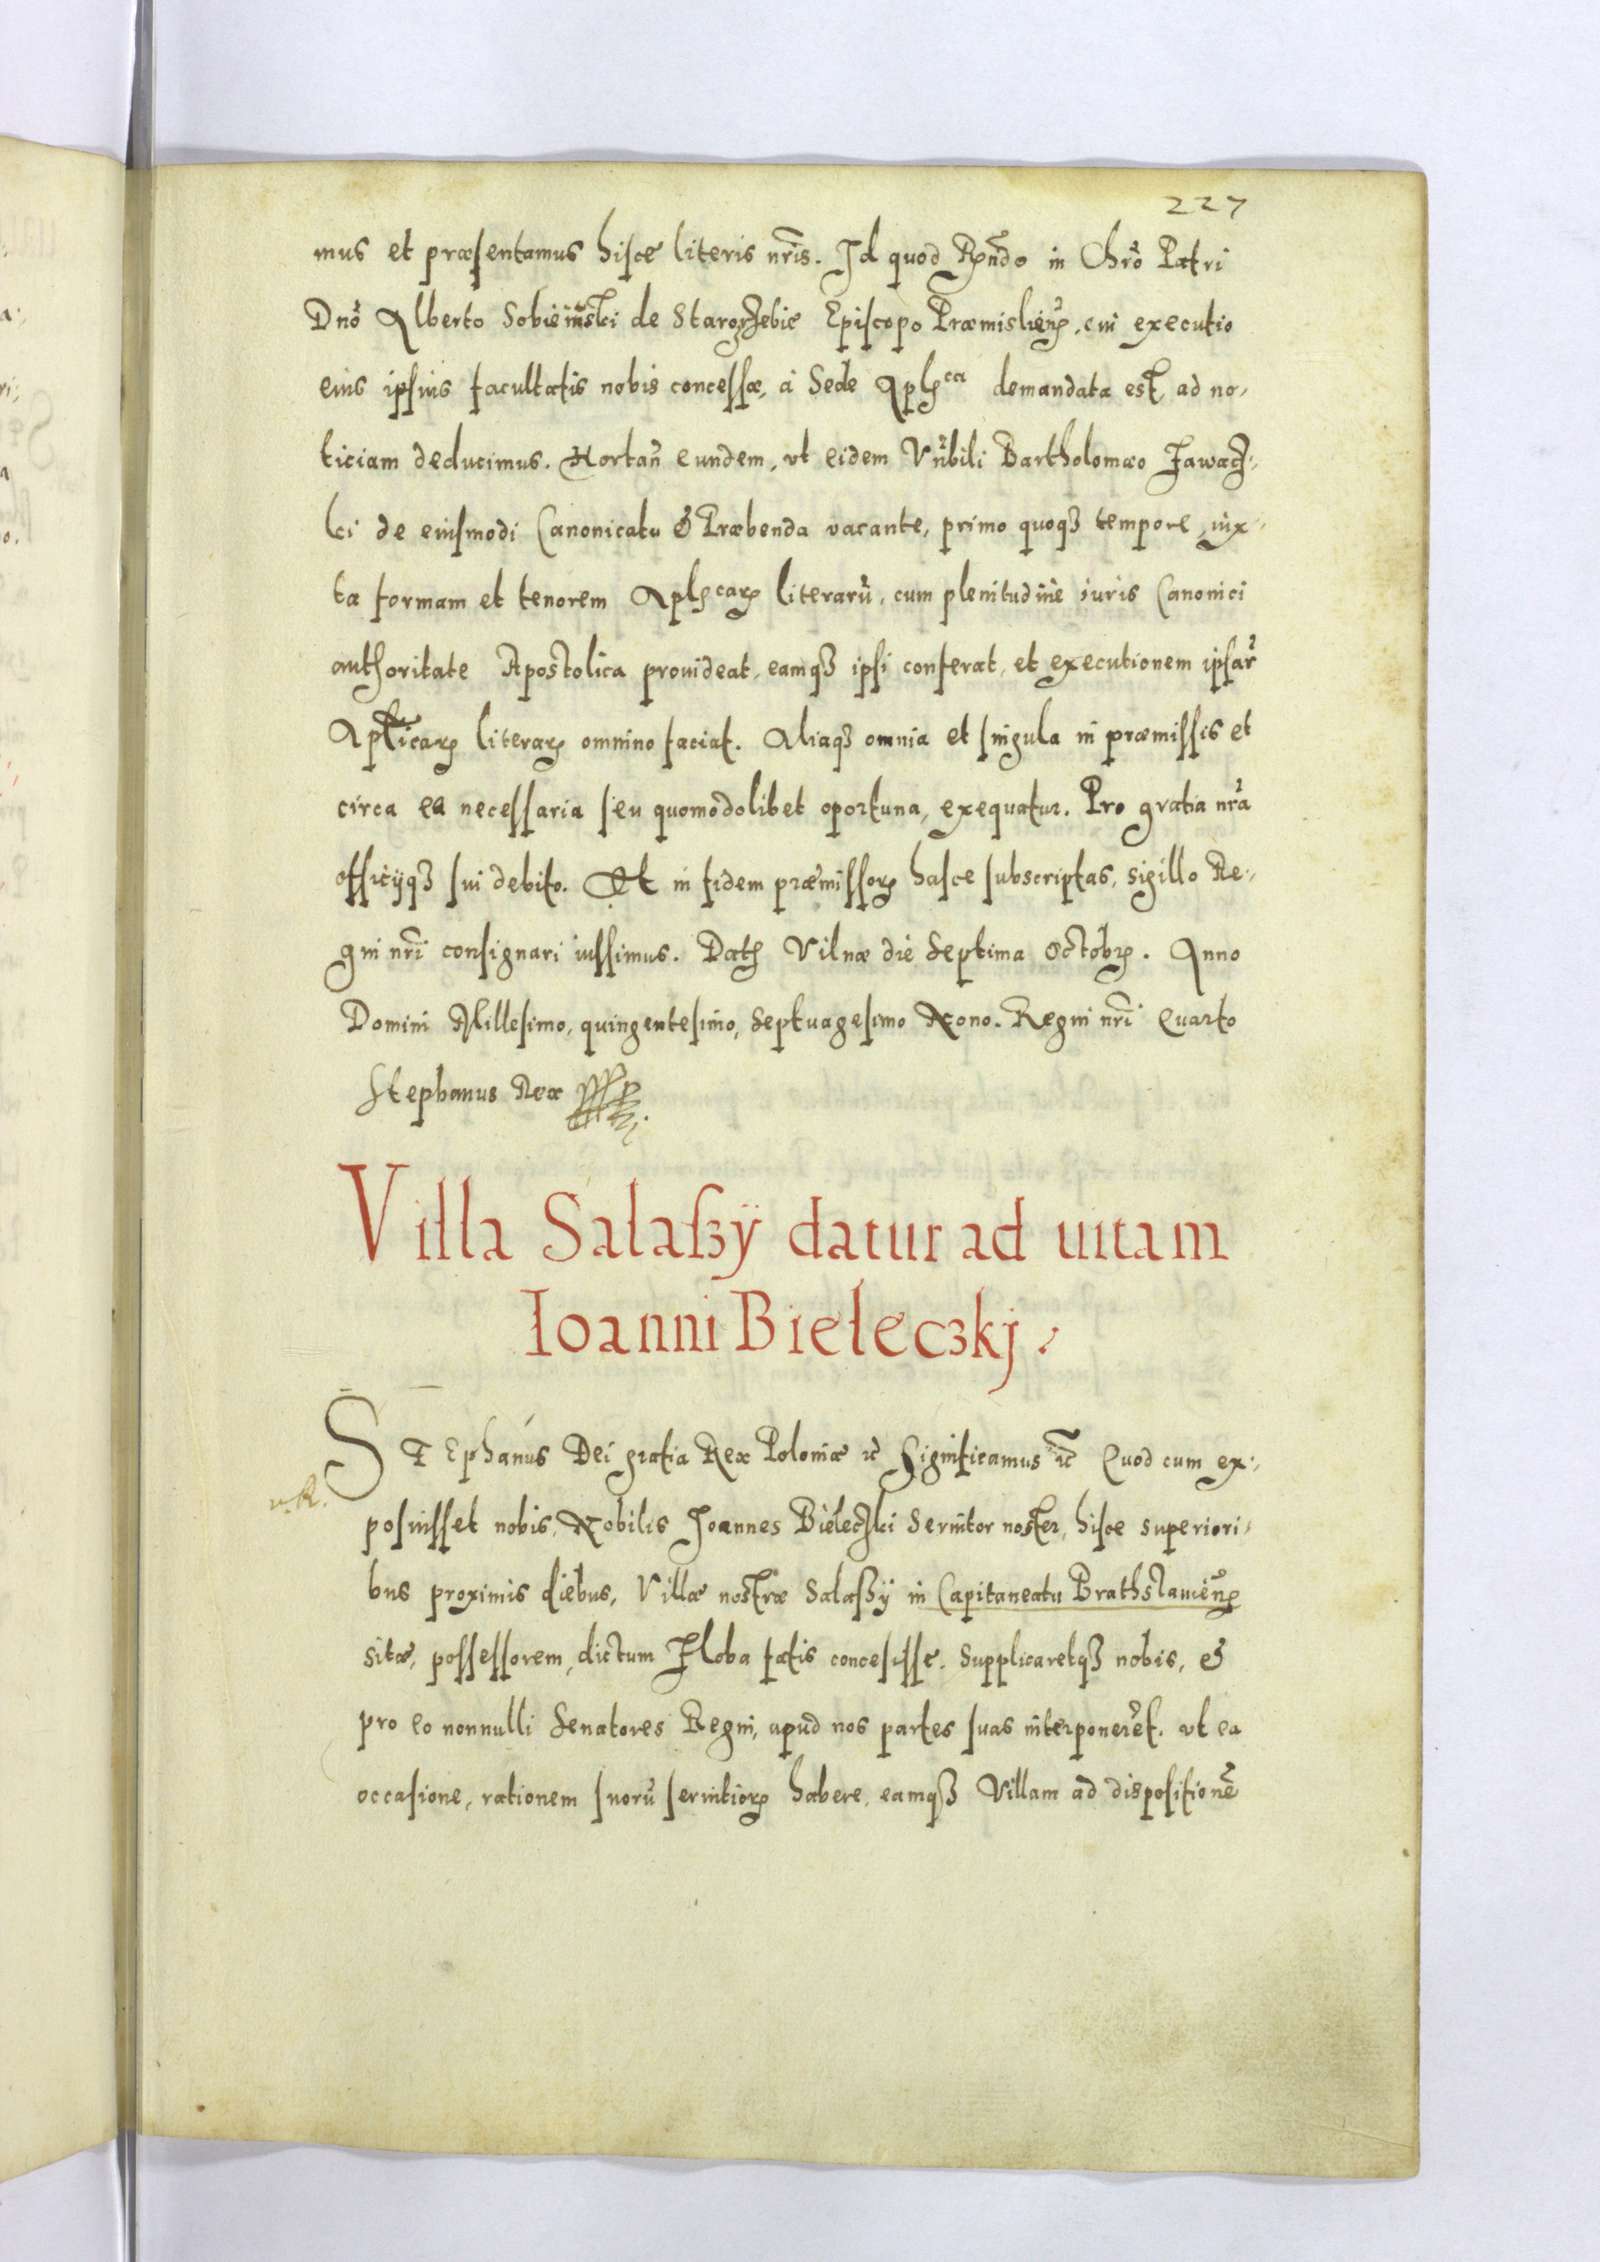 227
mus et præsentamus hisce literis nr̃is. Id quod Rṇ̃do in Chrõ Patri
Dnõ Alberto Sobieiuski de Starozrzebie Episcopo Præmislień, cui executio
eius ipsius facultatis nobis concessæ, á Sede Aplca demandata est, ad no,
ticiam deducimus. Hortañ eundem, vt eidem Vñbili Bartholomæo Jawacz,
ki de eiusmodi Canonicatu & Præbenda vacante, primo quoqȝ tempore, iux,
ta formam et tenorem Aplcarꝝ literarũ, cum plenitudine iuris Canonici
authoritate Apostolica prouideat, eamqȝ ipsi conferat, et executionem ipsar̃
Apl̃icarꝝ literarꝝ omnino faciat. Aliaqȝ omnia et singula in præmissis et
circa ea necessaria seu quomodolibet oportuna, exequatur. Pro gratia nr̃a
officijqȝ sui debito. Et in fidem præmissorꝝ hasce subscriptas, sigillo Re,
gni nr̃i consignari iussimus. Dat Vilnæ die Septima Octobrꝭ. Anno
Domini Millesimo, quingentesimo, Septuagesimo Nono. Regni nr̃i Quarto
Stephanus Rex
Villa Salaßÿ datur ad uitam
Ioanni Bieleczkj.
STEphanus Dei gratia Rex Poloniæ ꝛc̃ Significamus ꝛc̃ Quod cum ex,
posuisset nobis, Nobilis Joannes Bieleczki Seruitor noster, hisce superiori,
bus proximis diebus, Villæ nostræ Salaßÿ in Capitaneatu Brathslauień
sitæ, possessorem, dictum Hloba fatis concesisse. Supplicaretqȝ nobis, &
pro eo nonnulli Senatores Regni, apud nos partes suas interponerẽt. vt ea
occasione, rationem suorũ seruitiorꝝ habere, eamqȝ Villam ad dispositionẽ